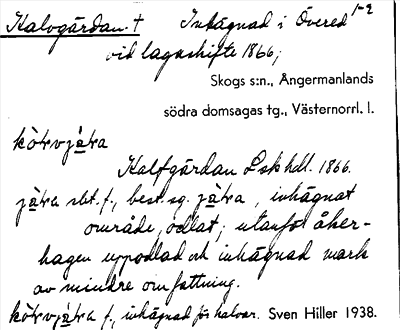 Kalvgårdan. † Inhägnad i Övered 1-2
vid lagaskifte 1866,
Skogs s:n., Ångermanlands
södra domsagas tg., Västernorrl. l.
Kalfgårdan Lskhdl. 1866.
sbt. f., best. sg. , inhägnat
område, odlat, utanför åker-
hagen uppodlad och inhägnad mark
av mindre omfattning.
f., inhägnad för kalvar. Sven Hiller 1938.